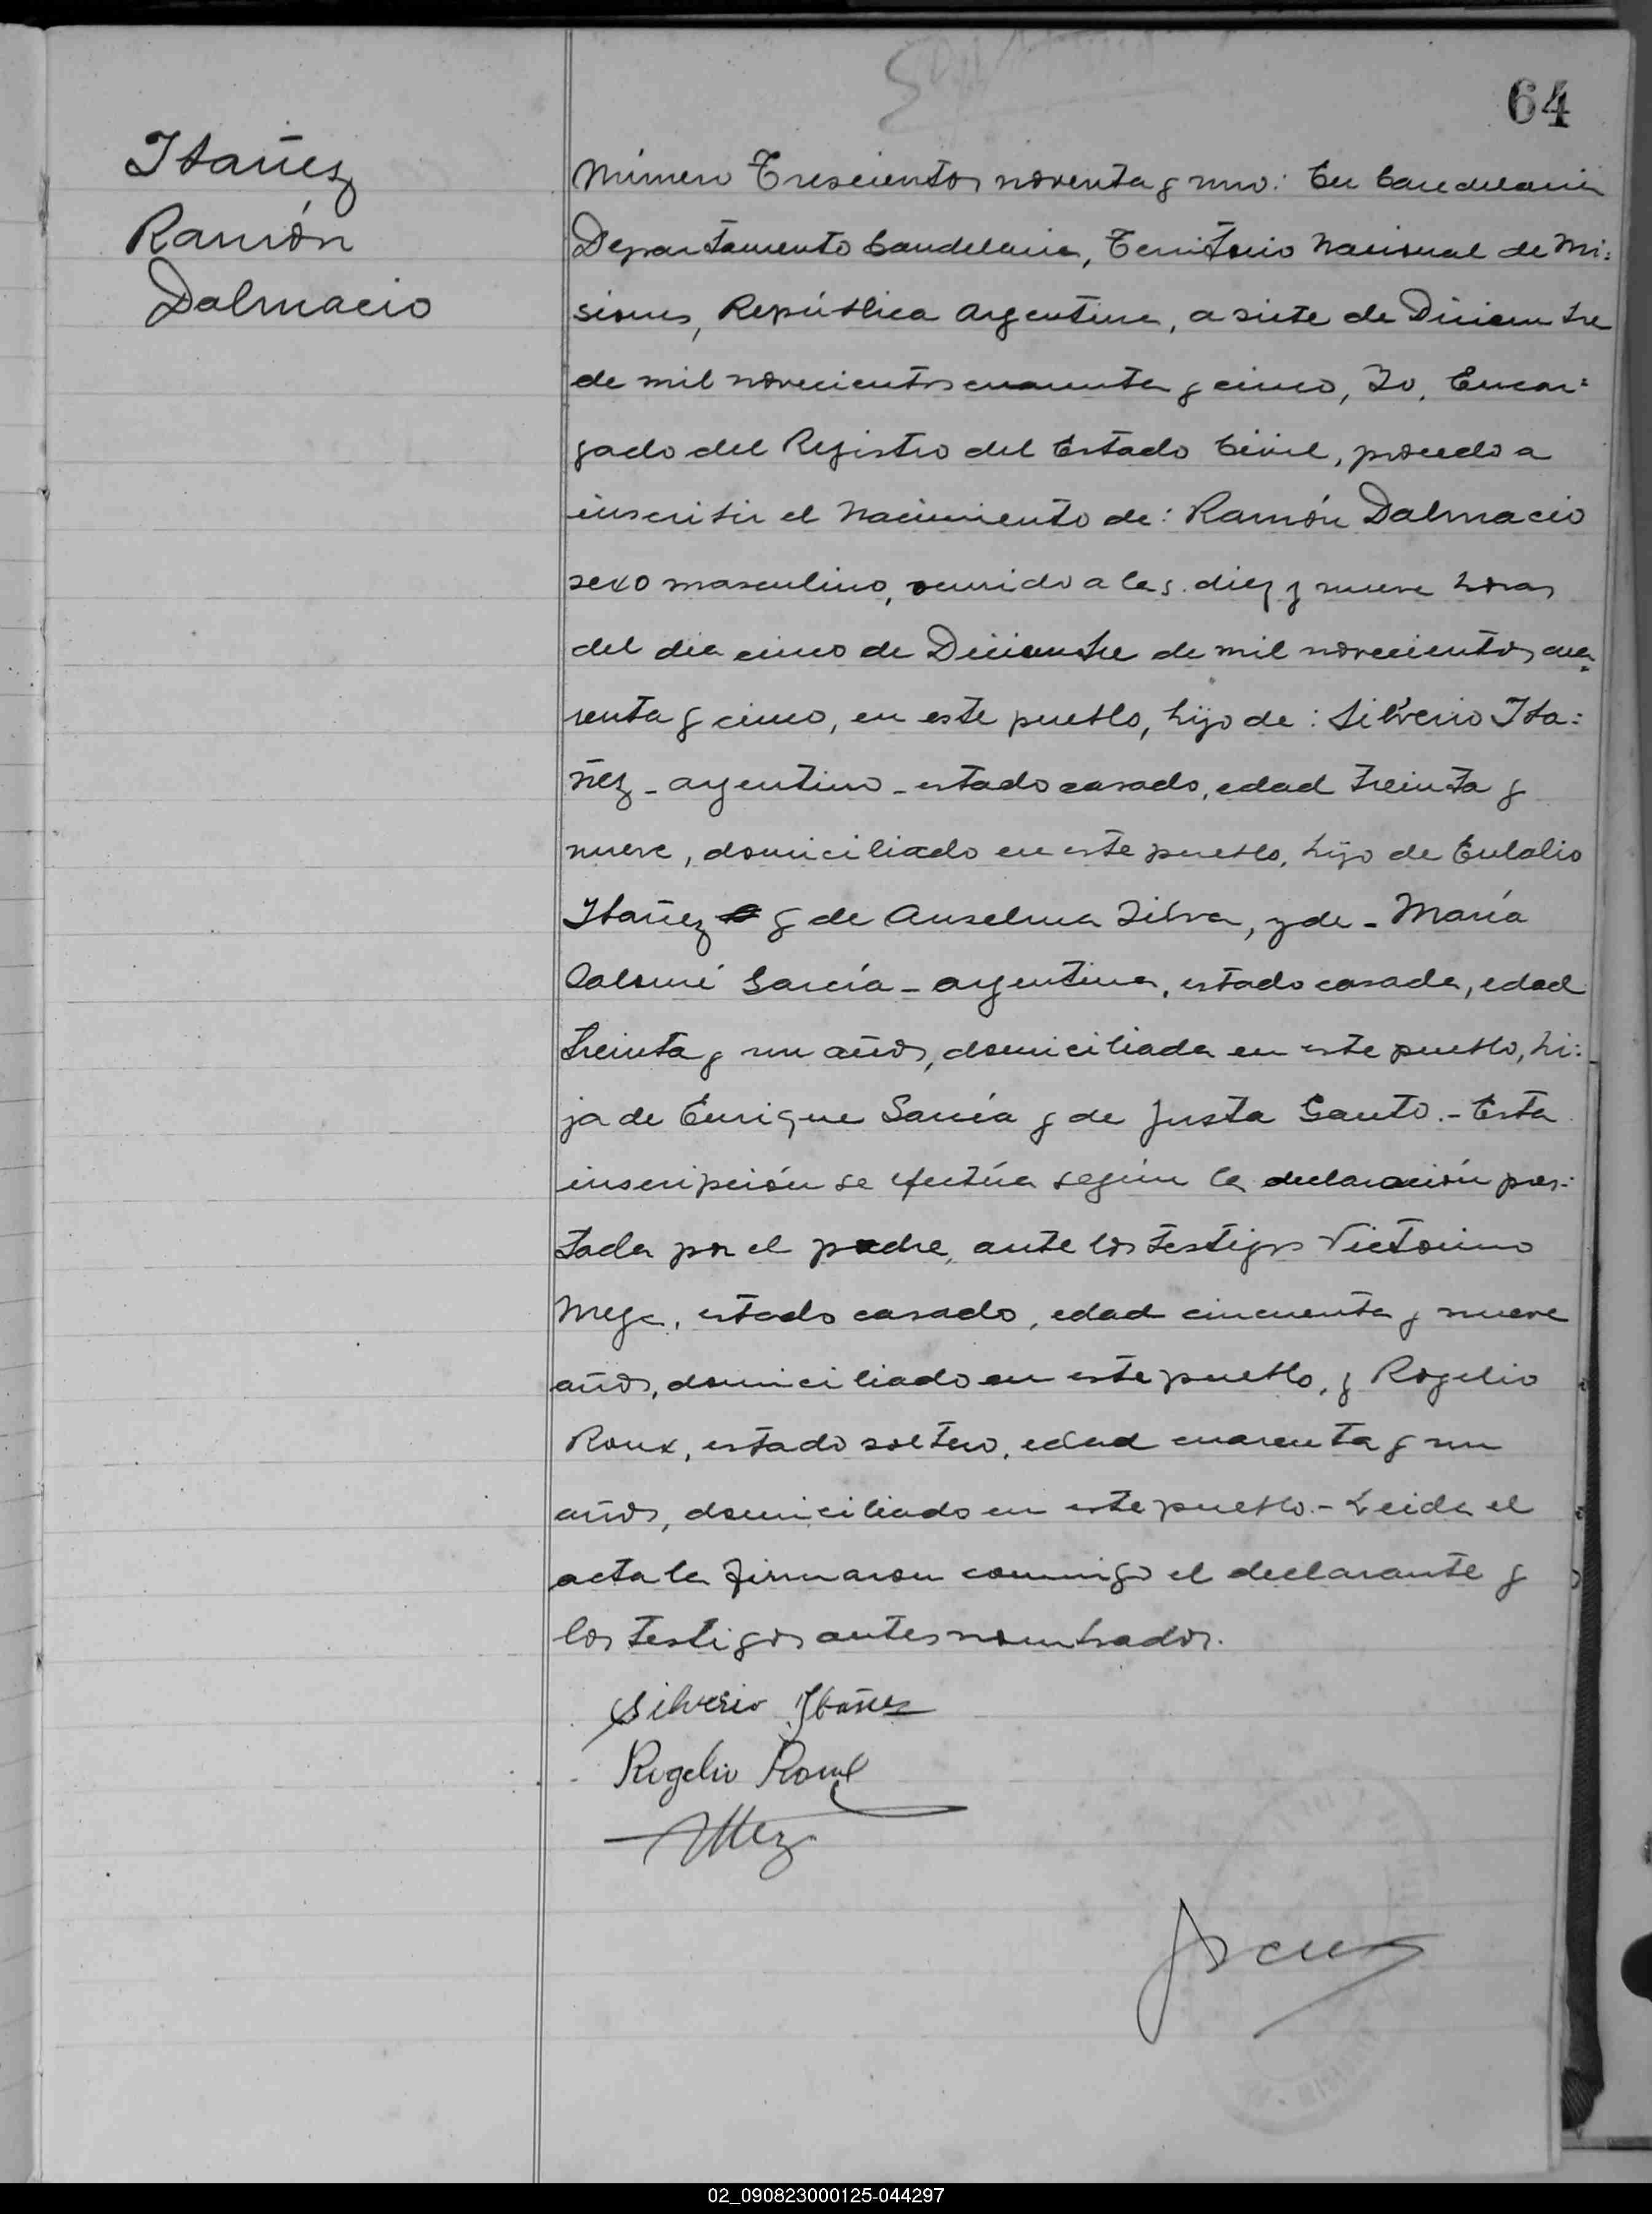 64
Ibañez
Ramón
Dalmacio
Número Trescientos noventa y uno: En Candelaria
Departamento Candelaria, Territorio Nacional de Mi=
siones, República Argentina, a siete de Diciembre
de mil novecientos cuarenta y cinco, Yo, Encar=
gado del Registro del Estado Civil, procedo a
inscribir el Nacimiento de: Ramón Dalmacio
sexo masculino, ocurrido a las diez y nueve horas
del dia cinco de Diciembre de mil novecientos cua=
renta y cinco, en este pueblo, hijo de: Silverio Iba=
ñez - argentino - estado casado, edad treinta y
nueve, domiciliado en este pueblo, hijo de Eulalio
Ibañez y de Anselma Silva, y de - María
Salomé García - argentina, estado casada, edad
treinta y un años, domiciliada en este pueblo, hi=
ja de Enrique García y de Justa Gauto.- Esta
inscripción se efectúa según la declaración pres=
tada por el padre, ante los testigos Victorino
Meza, estado casado, edad cincuenta y nueve
años, domiciliado en este pueblo, y Rogelio
Roux, estado soltero, edad cuarenta y un
años, domiciliado en este pueblo.- Leida el
acta la firmaron conmigo el declarante y
los testigos antes nombrados.
Silverio Ibañez
Rogelio Roux
VMeza
02_090823000125-044297